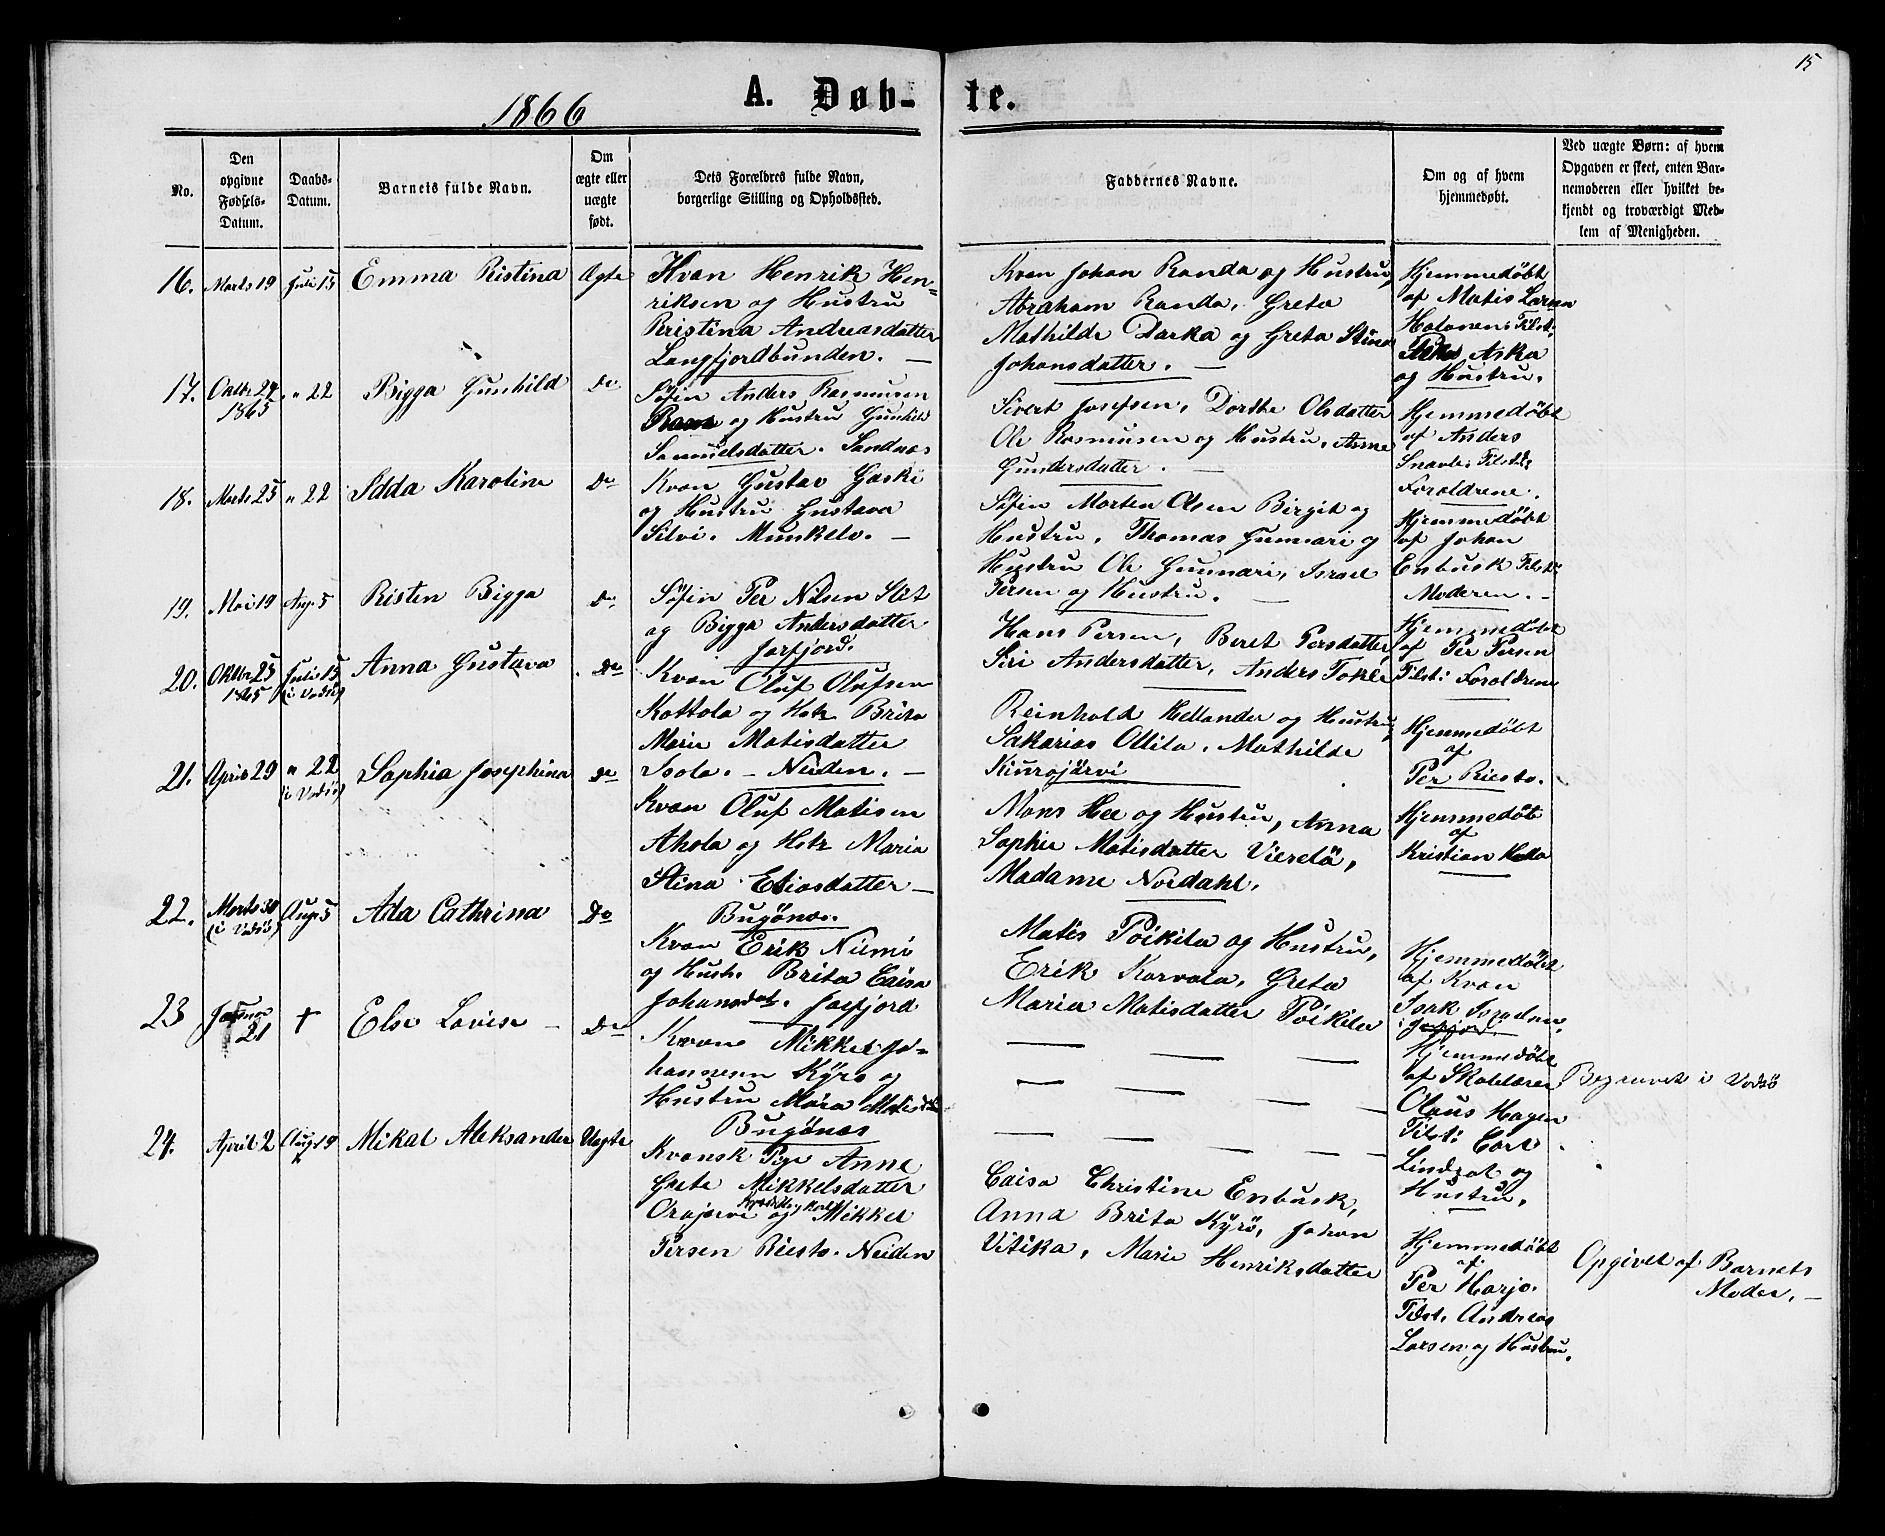 15
1866
A. Døb-te.
No.
Den opgivne Fødsels-Datum.
Daabs-Datum.
Barnets fulde Navn.
Om ægte eller uægte født.
Dets Forældres fulde Navn, borgerlige Stilling og Opholdssted.
Faddernes Navne.
Om og af hvem hjemmedøbt.
Ved uægte Børn: af hvem Opgaven er skeet, enten Barnemoderen eller hvilket bekjendt og troværdigt Medlem af Menigheden.
16. Marts 19 Juli 15 Emma Ristina Ægte
Kvæn Henrik Hen-
riksen og Hustru
Kristina Andreasdatter
Langfjordbunden. —
Kvæn Johan Randa og Hustru,
Abraham Randa, Greta
Mathilde Darka og Greta Stina
Johansdatter. —
Hjemmedøbt
af Matis Larsen
Halonen: Tilst.
Aska
og Hustru.
17. Oktbr 24 1865 " 22 Bigga Gunhild Do
Søfin Anders Rasmusen
og Hustru Gunhild
Samuelsdatter. Sandnæs
Sivert Josefsen, Dorthe Olsdatter
Ole Rasmusen og Hustru, Anne
Gundersdatter. —
Hjemmedøbt
af Anders
Snavle: Tilst:
Forældrene.
18. Marts 25 " 22 Idda Karoline Do
Kvæn Gustav Gaski
og Hustru Gustava
Silvi. Munkelv. —
Søfin Morten Olsen Birgit og
Hustru, Thomas Gunnari og
Hustru Ole Gunnari, Israel
Persen og Hustru. —
Hjemmedøbt
af Johan
Enbusk Tilst:
Moderen. —
19. Mai 19 Aug. 5 Risten Bigga Do
Søfin Per Nilsen Slit
og Bigga Andersdatter
Jarfjord.
Hans Persen, Beret Persdatter,
Siri Andersdatter, Anders Tokle
Hjemmedøbt
af Per Persen
Tilst: Forældrene
20. Oktbr 25 1865 Juli 15 (i Vadsø) Anna Gustava Do
Kvæn Oluf Olufsen
Kottola og Hstr. Brita
Marie Matisdatter
Isola. — Neiden. —
Reinhold Hellander og Hustru,
Sakarias Ollila, Mathilde
Kinrojärvi
Hjemmedøbt
af
Per Riesto.
21. April 29 " 22 (i Vadsø) Sophia Josephina Do
Kvæn Oluf Matisen
Ahola og Hstr. Maria
Stina Eliasdatter —
Bugønæs.
Mons Hee og Hustru, Anna
Sophie Matisdatter Vieretä,
Madame Nordahl.
Hjemmedøbt
af
Kristian Hella
22. Marts 30 (i Vadsø) Aug. 5 Ada Cathrina Do
Kvæn Erik Niemi
og Hustr. Brita Caisa
Johansdat. Jarfjord
Matis Poikila og Hustru,
Erik Karvala, Greta
Maria Matisdatter Poikila
Hjemmedøbt
af Kvæn
Isak Israelsen.
i Jarfjord.
23 21 † Else Lovise — Do
Kvæn Mikkel Jo-
hannesen Kyrö og
Hustru Mara Matisdtr
Bugønæs
Hjemmedøbt
af Skolelærer
Olaus Hagen
Tilst: Carl
Lindqvt og
Hustru.
Begravet i Vadsø
24. April 2 Aug. 19 Mikal Aleksander Uægte
Kvænsk Pige Anne
Grete Mikkelsdatter
Orajærvi og Mikkel
Persen Riesto. Neiden
Caisa Christine Enbusk,
Anna Brita Kyrö, Johan
Vitika, Marie Henriksdatter
Hjemmedøbt
af
Per Harjo.
Tilst. Andreas
Larsen og Hustru.
Opgivet af Barnets
Moder. —